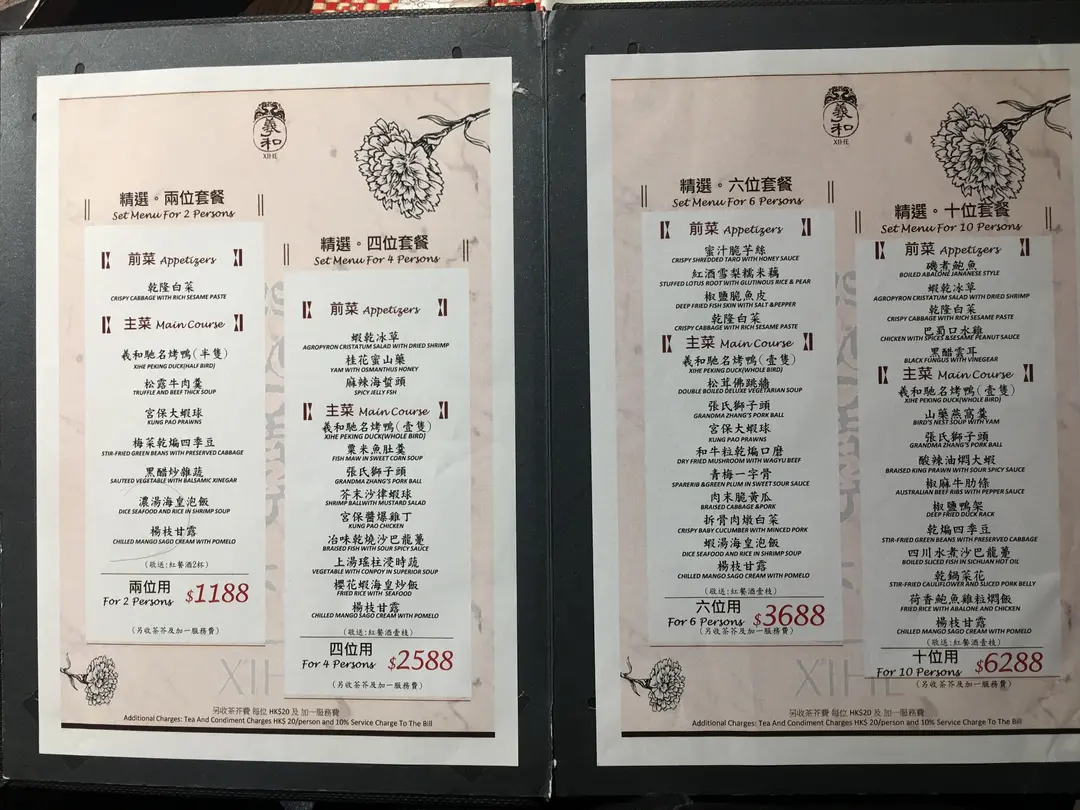 義和
XIHE
精選。兩位套餐
Set Menu For 2 Persons
前菜 Appetizers
乾隆白菜
CRISPY CABBAGE WITH RICH SESAME PASTE
主菜 Main Course
義和馳名烤鴨(半隻)
XIHE PEKING DUCK(HALF BIRD)
松露牛肉羹
TRUFFLE AND BEEF THICK SOUP
宮保大蝦球
KUNG PAO PRAWNS
梅菜乾煸四季豆
STIR-FRIED GREEN BEANS WITH PRESERVED CABBAGE
黑醋炒雜蔬
SAUTEED VEGETABLE WITH BALSAMIC XINEGAR
濃湯海皇泡飯
DICE SEAFOOD AND RICE IN SHRIMP SOUP
楊枝甘露
CHILLED MANGO SAGO CREAM WITH POMELO
(敬送:紅餐酒2杯)
兩位用
For 2 Persons $1188
(另收茶芥及加一服務費)
精選。四位套餐
Set Menu For 4 Persons
前菜 Appetizers
蝦乾冰草
AGROPYRON CRISTATUM SALAD WITH DRIED SHRIMP
桂花蜜山藥
YAM WITH OSMANTHUS HONEY
麻辣海蜇頭
SPICY JELLY FSH
主菜 Main Course
義和馳名烤鴨(壹隻)
XIHE PEKING DUCK(WHOLE BIRD)
粟米魚肚羹
FISH MAW IN SWEET CORN SOUP
張氏獅子頭
GRANDMA ZHANG'S PORK BALL
芥末沙律蝦球
SHRIMP BALLWITH MUSTARD SALAD
宮保醬爆雞丁
KUNG PAO CHICKEN
冶味乾燒沙巴龍躉
BRAISED FISH WITH SOUR SPICY SAUCE
上湯瑤柱浸時蔬
VEGETABLE WITH CONPOY IN SUPERIOR SOUP
櫻花蝦海皇炒飯
FRIED RICE WITH SEAFOOD
楊枝甘露
CHILLED MANGO SAGO CREAM WITH POMELO
(敬送:紅餐酒壹枝)
四位用
For 4 Persons $2588
(另收茶芥及加一服務費)
XIH
另收茶芥費 每位 HK$20 及 加一服務費
Additional Charges: Tea And Condiment Charges HK$ 20/person and 10% Service Charge To The Bill
義和
XIHE
精選。六位套餐
Set Menu For 6 Persons
前菜 Appetizers
蜜汁脆芋絲
CRISPY SHREDDED TARO WITH HONEY SAUCE
紅酒雪梨糯米藕
STUFFED LOTUS ROOT WITH GLUTINOUS RICE & PEAR
椒鹽脆魚皮
DEEP FRIED FISH SKIN WITH SALT &PEPPER
乾隆白菜
CRISPY CABBAGE WITH RICH SESAME PASTE
主菜 Main Course
義和馳名烤鴨(壹隻)
XIHE PEKING DUCK(WHOLE BIRD)
松茸佛跳牆
DOUBLE BOILED DELUXE VEGETARIAN SOUP
張氏獅子頭
GRANDMA ZHANG'S PORK BALL
宮保大蝦球
KUNG PAO PRAWNS
和牛粒乾煸口磨
DRY FRIED MUSHROOM WITH WAGYU BEEF
青梅一字骨
SPARERIB &GREEN PLUM IN SWEET SOUR SAUCE
肉末脆黃瓜
BRAISED CABBAGE &PORK
拆骨肉燉白菜
CRISPY BABY CUCUMBER WITH MINCED PORK
蝦湯海皇泡飯
DICE SEAFOOD AND RICE IN SHRIMP SOUP
楊枝甘露
CHILLED MANGO SAGO CREAM WITH POMELO
(敬送:紅餐酒壹枝)
六位用
For 6 Persons $3688
(另收茶芥及加一服務費)
精選。十位套餐
Set Menu For 10 Persons
前菜 Appetizers
磯煮鮑魚
BOILED ABALONE JANANESE STYLE
蝦乾冰草
AGROPYRON CRISTATUM SALAD WITH DRIED SHRIMP
乾隆白菜
CRISPY CABBAGE WITH RICH SESAME PASTE
巴蜀口水雞
CHICKEN WITH SPICES &SESAME PEANUT SAUCE
黑醋雲耳
BLACK FUNGUS WITH VINEGEAR
主菜 Main Course
義和馳名烤鴨(壹隻)
XIHE PEKING DUCK(WHOLE BIRD)
山藥燕窩羹
BIRD'S NEST SOUP WITH YAM
張氏獅子頭
GRANDMA ZHANG'S PORK BALL
酸辣油燜大蝦
BRAISED KING PRAWN WITH SOUR SPICY SAUCE
椒麻牛肋條
AUSTRALIAN BEEF RIBS WITH PEPPER SAUCE
椒鹽鴨架
DEEP FRIED DUCK RACK
乾煸四季豆
STIR-FRIED GREEN BEANS WITH PRESERVED CABBAGE
四川水煮沙巴龍躉
BOILED SLICED FISH IN SICHUAN HOT OIL
乾鍋菜花
STIR-FRIED CAULIFLOWER AND SLICED PORK BELLY
荷香鮑魚雞粒燜飯
FRIED RICE WITH ABALONE AND CHICKEN
楊枝甘露
CHILLED MANGO SAGO CREAM WITH POMELO
(敬送:紅餐酒壹枝)
十位用
For 10 Persons $6288
(另收茶芥及加一服務費)
XIHE
另收茶芥費 每位 HK$20 及 加一服務費
Additional Charges: Tea And Condiment Charges HK$ 20/person and 10% Service Charge To The Bill